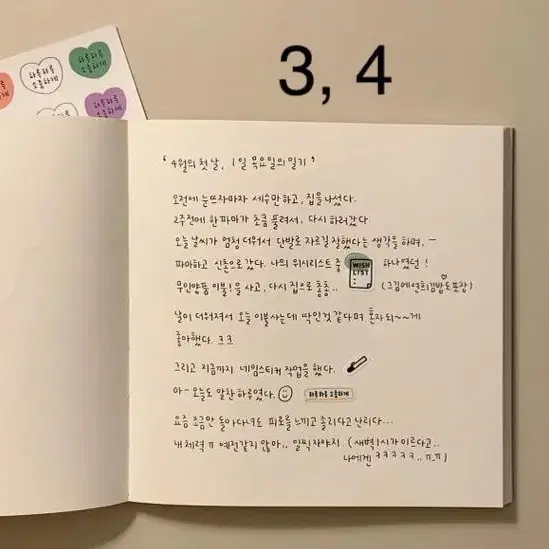 3, 4
하루하루
소중하게
하루하루
소중하게
하루하루
소중하게
'4월의 첫 날, 1일 목요일의 일기'
오전에 눈뜨자마자 세수만 하고, 집을 나섰다.
2주전에 한 파마가 조금 풀려서, 다시 하러갔다.
오늘 날씨가 엄청 더워서 단발로 자르길 잘했다는 생각을 하며, ~
파마하고 신촌으로 갔다. 나의 위시리스트 중 WISH LIST 하나였던!
무인양품 이불!을 사고, 다시 집으로 총총.. (그김에 연희김밥도 포장)
날이 더워져서 오늘 이불사는데 딱인것 같다며 혼자 되~~게
좋아했다. ㅋㅋ
그리고 지금까지 네임스티커 작업을 했다.
아- 오늘도 알찬 하루였다. 하루하루 소중하게
요즘 조금만 돌아다녀도 피로를 느끼고 졸리다고 난리다...
내 체력 ㅠ 예전같지 않아.. 일찍자야지. (새벽1시가 이르다고..
나에겐 ㅋㅋㅋㅋㅋ..ㅠ_ㅠ)